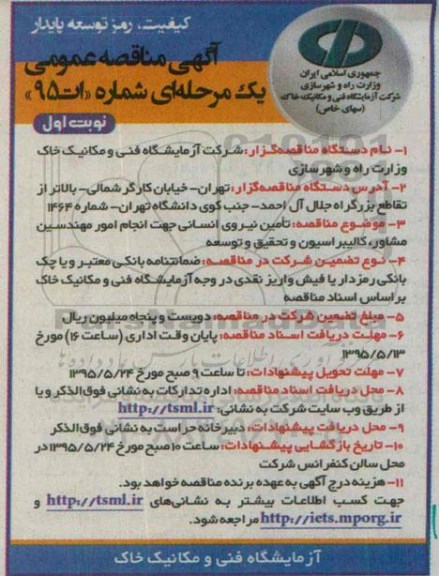 کیفیت، رمز توسعه پایدار
آگهی مناقصه عمومی
یک مرحله‌ای شماره «ات۹۵»
نوبت اول
جمهوری اسلامی ایران
وزارت راه و شهرسازی
شرکت آزمایشگاه فنی و مکانیک خاک
(سهامی خاص)
۱- نام دستگاه مناقصه‌گزار: شرکت آزمایشگاه فنی و مکانیک خاک
وزارت راه و شهرسازی
۲- آدرس دستگاه مناقصه‌گزار: تهران- خیابان کارگر شمالی- بالاتر از
تقاطع بزرگراه جلال آل احمد- جنب کوی دانشگاه تهران- شماره ۱۴۶۴
۳- موضوع مناقصه: تأمین نیروی انسانی جهت انجام امور مهندسین
مشاور، کالیبراسیون و تحقیق و توسعه
۴- نوع تضمین شرکت در مناقصه: ضمانتنامه بانکی معتبر و یا چک
بانکی رمزدار یا فیش واریز نقدی در وجه آزمایشگاه فنی و مکانیک خاک
براساس اسناد مناقصه
۵- مبلغ تضمین شرکت در مناقصه: دویست و پنجاه میلیون ریال
۶- مهلت دریافت اسناد مناقصه: پایان وقت اداری (ساعت ۱۶) مورخ
۱۳۹۵/۵/۱۳
۷- مهلت تحویل پیشنهادات: تا ساعت ۹ صبح مورخ ۱۳۹۵/۵/۲۴
۸- محل دریافت اسناد مناقصه: اداره تدارکات به نشانی فوق‌الذکر و یا
از طریق وب سایت شرکت به نشانی: http://tsml.ir
۹- محل دریافت پیشنهادات: دبیرخانه حراست به نشانی فوق‌الذکر
۱۰- تاریخ بازگشایی پیشنهادات: ساعت ۱۰ صبح مورخ ۱۳۹۵/۵/۲۴ در
محل سالن کنفرانس شرکت
۱۱- هزینه درج آگهی به عهده برنده مناقصه خواهد بود.
جهت کسب اطلاعات بیشتر به نشانی‌های http://tsml.ir و
http://iets.mporg.ir مراجعه شود.
آزمایشگاه فنی و مکانیک خاک